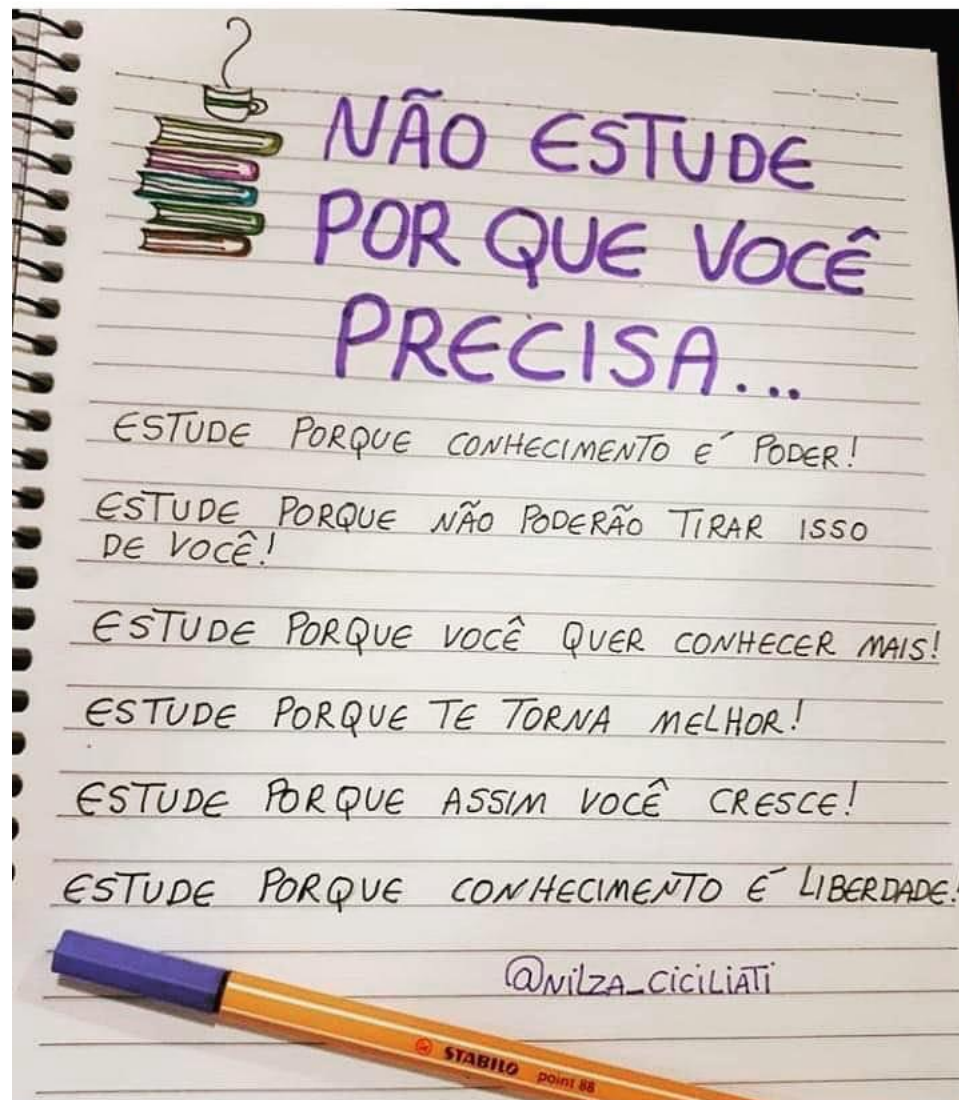 NÃO ESTUDE
POR QUE VOCÊ
PRECISA...
ESTUDE PORQUE CONHECIMENTO É PODER!
ESTUDE PORQUE NÃO PODERÃO TIRAR ISSO
DE VOCÊ!
ESTUDE PORQUE VOCÊ QUER CONHECER MAIS!
ESTUDE PORQUE TE TORNA MELHOR!
ESTUDE PORQUE ASSIM VOCÊ CRESCE!
ESTUDE PORQUE CONHECIMENTO É LIBERDADE!
@NiLZA_CiCiLiATi
STABILO point 88